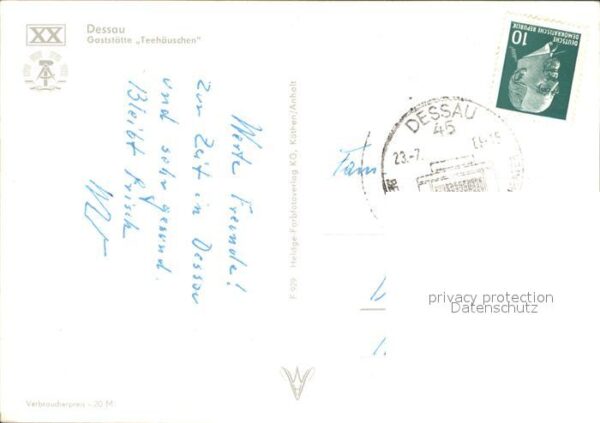 XX
Dessau
Gaststätte „Teehäuschen"
Werte Freunde!
Zur Zeit in Dessau
und sehr gesund.
Bleibt frisch
F 929 Heldge-Farbfotoverlag KG, Köthen/Anhalt
Verbraucherpreis -,20 M
10
DEUTSCHE
DEMOKRATISCHE REPUBLIK
DESSAU
45
23.-7.
Fam
privacy protection
Datenschutz